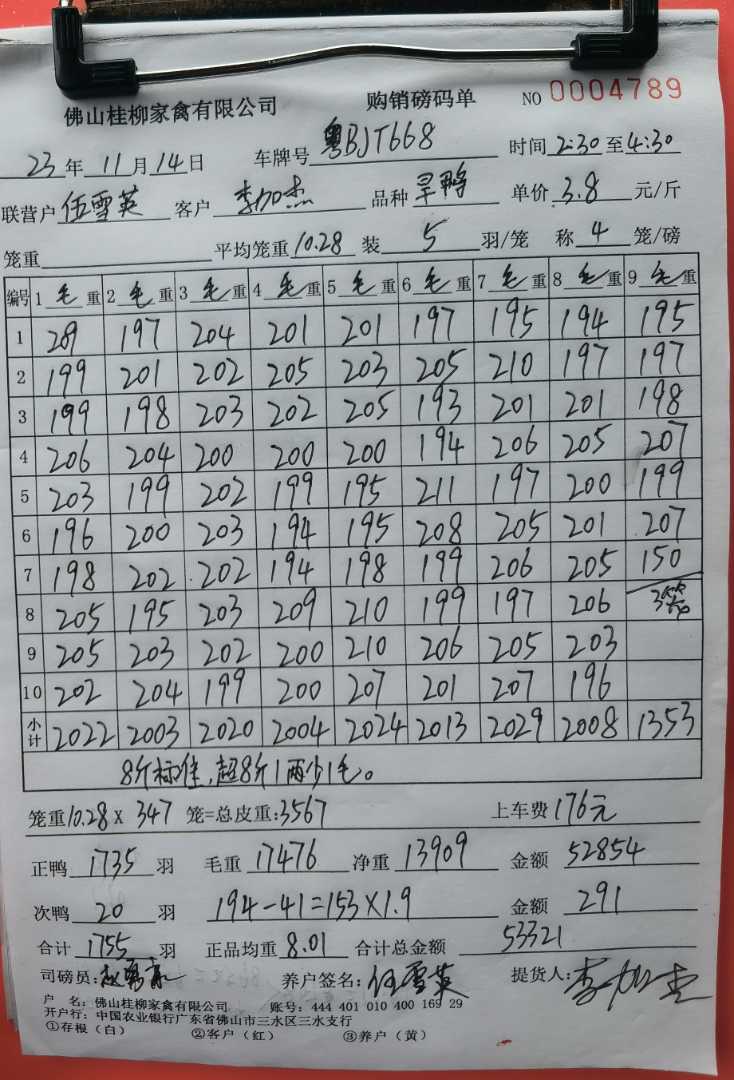 佛山桂柳家禽有限公司 购销磅码单 NO 0004789
23年11月14日 车牌号粤BJT668 时间2:30至4:30
联营户伍雪英 客户李加杰 品种旱鸭 单价3.8元/斤
笼重 平均笼重10.28 装5羽/笼 称4笼/磅
编号 1毛重 2毛重 3毛重 4毛重 5毛重 6毛重 7毛重 8毛重 9毛重
1 209 197 204 201 201 197 195 194 195
2 199 201 202 205 203 205 210 197 197
3 199 198 203 202 205 193 201 201 198
4 206 204 200 200 200 194 206 205 207
5 203 199 202 199 195 211 197 200 199
6 196 200 203 194 195 208 205 201 207
7 198 202 202 194 198 199 206 205 150
8 205 195 203 209 210 199 197 206 3
9 205 203 202 200 210 206 205 203
10 202 204 199 200 207 201 207 196
小计 2022 2003 2020 2004 2024 2013 2029 2008 1353
8斤标准,超8斤1两少1毛。
笼重10.28x 347 笼=总皮重:3567 上车费176元
正鸭1735羽 毛重17476 净重13909 金额52854
次鸭20羽 194-41=153×1.9 金额291
合计1755羽 正品均重8.01 合计总金额53321
司磅员: 养户签名:伍雪英 提货人:李加杰
户 名:佛山桂柳家禽有限公司 账号:444 401 010 400 169 29
开户行:中国农业银行广东省佛山市三水区三水支行
①存根(白) ②客户(红) ③养户(黄)